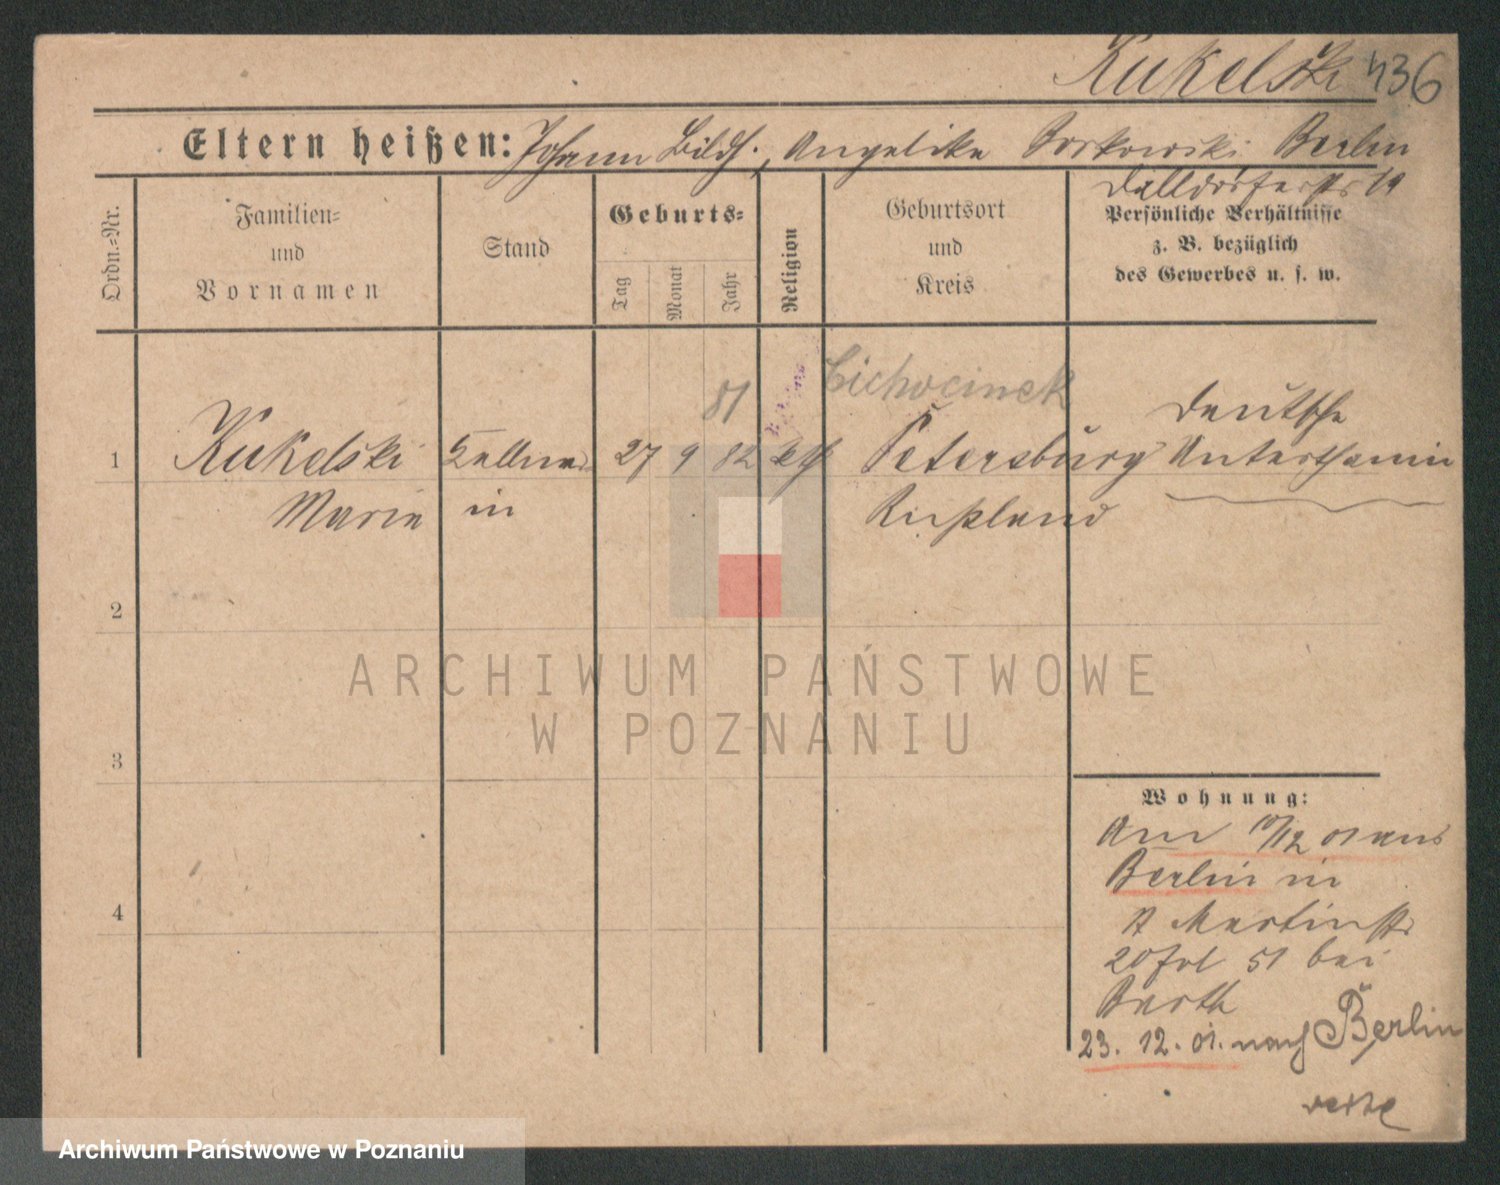 Kukelski 436
Eltern heißen: Johann Bildh., Angelika Borkowski Berlin
Dalldorferstr 19
Ordn.=Nr.
Familien=
und
Vornamen
Stand
Geburts=
Tag
Monat
Jahr
Religion
Geburtsort
und
Kreis
Persönliche Verhältnisse
z. B. bezüglich
des Gewerbes u. s. w.
81 Cichocinek Deutsche
1 Kukelski Kellner 27 9 82 kth Petersburg Unterthanin
Marie in Rußland
2
3
4
ARCHIWUM PAŃSTWOWE
W POZNANIU
Wohnung:
Am 17/12 01 aus
Berlin in
St Martinstr
20 fol 51 bei
Barth
23. 12. 01. nach Berlin
Archiwum Państwowe w Poznaniu